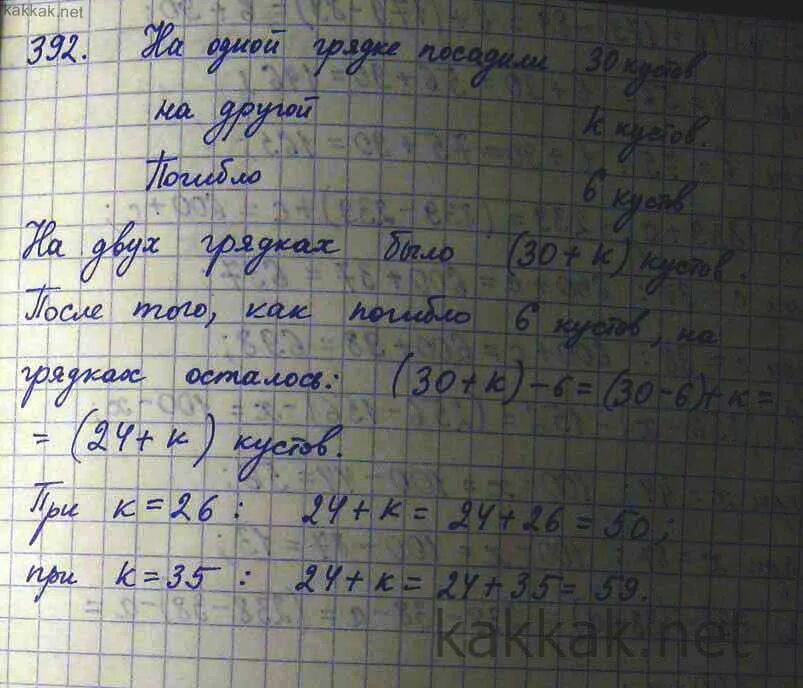 kakkak.net
392. На одной грядке посадили 30 кустов
на другой k кустов.
Погибло 6 куств
На двух грядках было (30 + k) кустов.
После того, как погибло 6 кустов, на
грядках осталось: (30 + k) - 6 = (30 - 6) + k =
= (24 + k) кустов.
При k = 26 : 24 + k = 24 + 26 = 50;
при k = 35 : 24 + k = 24 + 35 = 59.
kakkak.net